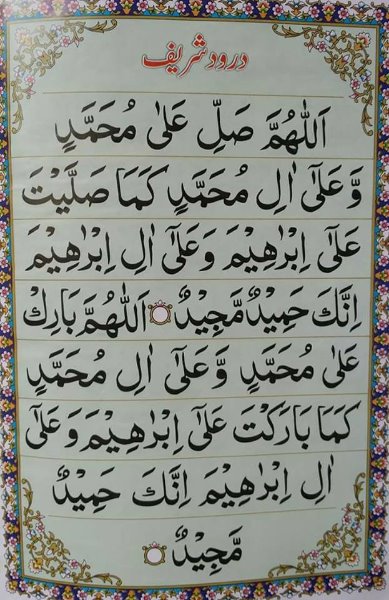 درود شریف
اَللّٰهُمَّ صَلِّ عَلٰى مُحَمَّدٍ
وَّعَلٰٓى اٰلِ مُحَمَّدٍ كَمَا صَلَّيْتَ
عَلٰٓى اِبْرٰهِيْمَ وَعَلٰٓى اٰلِ اِبْرٰهِيْمَ
اِنَّكَ حَمِيْدٌ مَّجِيْدٌ ۝ اَللّٰهُمَّ بَارِكْ
عَلٰى مُحَمَّدٍ وَّعَلٰٓى اٰلِ مُحَمَّدٍ
كَمَا بَارَكْتَ عَلٰٓى اِبْرٰهِيْمَ وَعَلٰٓى
اٰلِ اِبْرٰهِيْمَ اِنَّكَ حَمِيْدٌ
مَّجِيْدٌ ۝